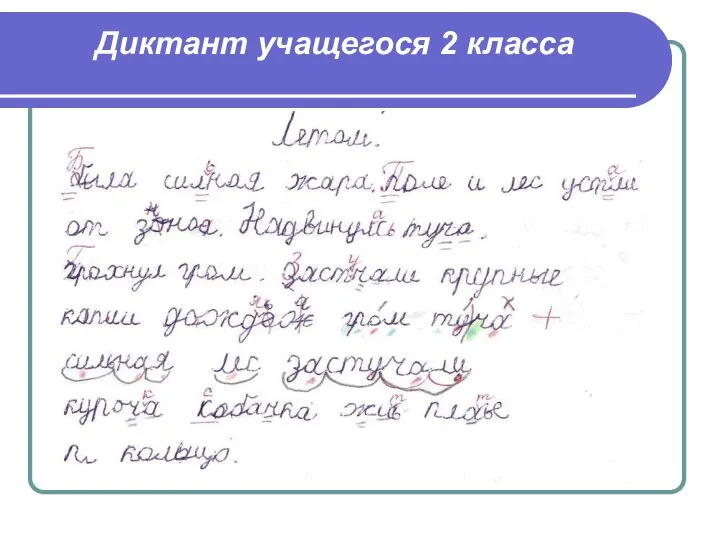 Диктант учащегося 2 класса
Летом.
была силная жара. поле и лес устли
от зноя. Надвинулсь туча.
грохнул гром. застчали крупные
капли гром туча
сильная лес застучали
куроча кобачка жив плаье
п. кольцо.